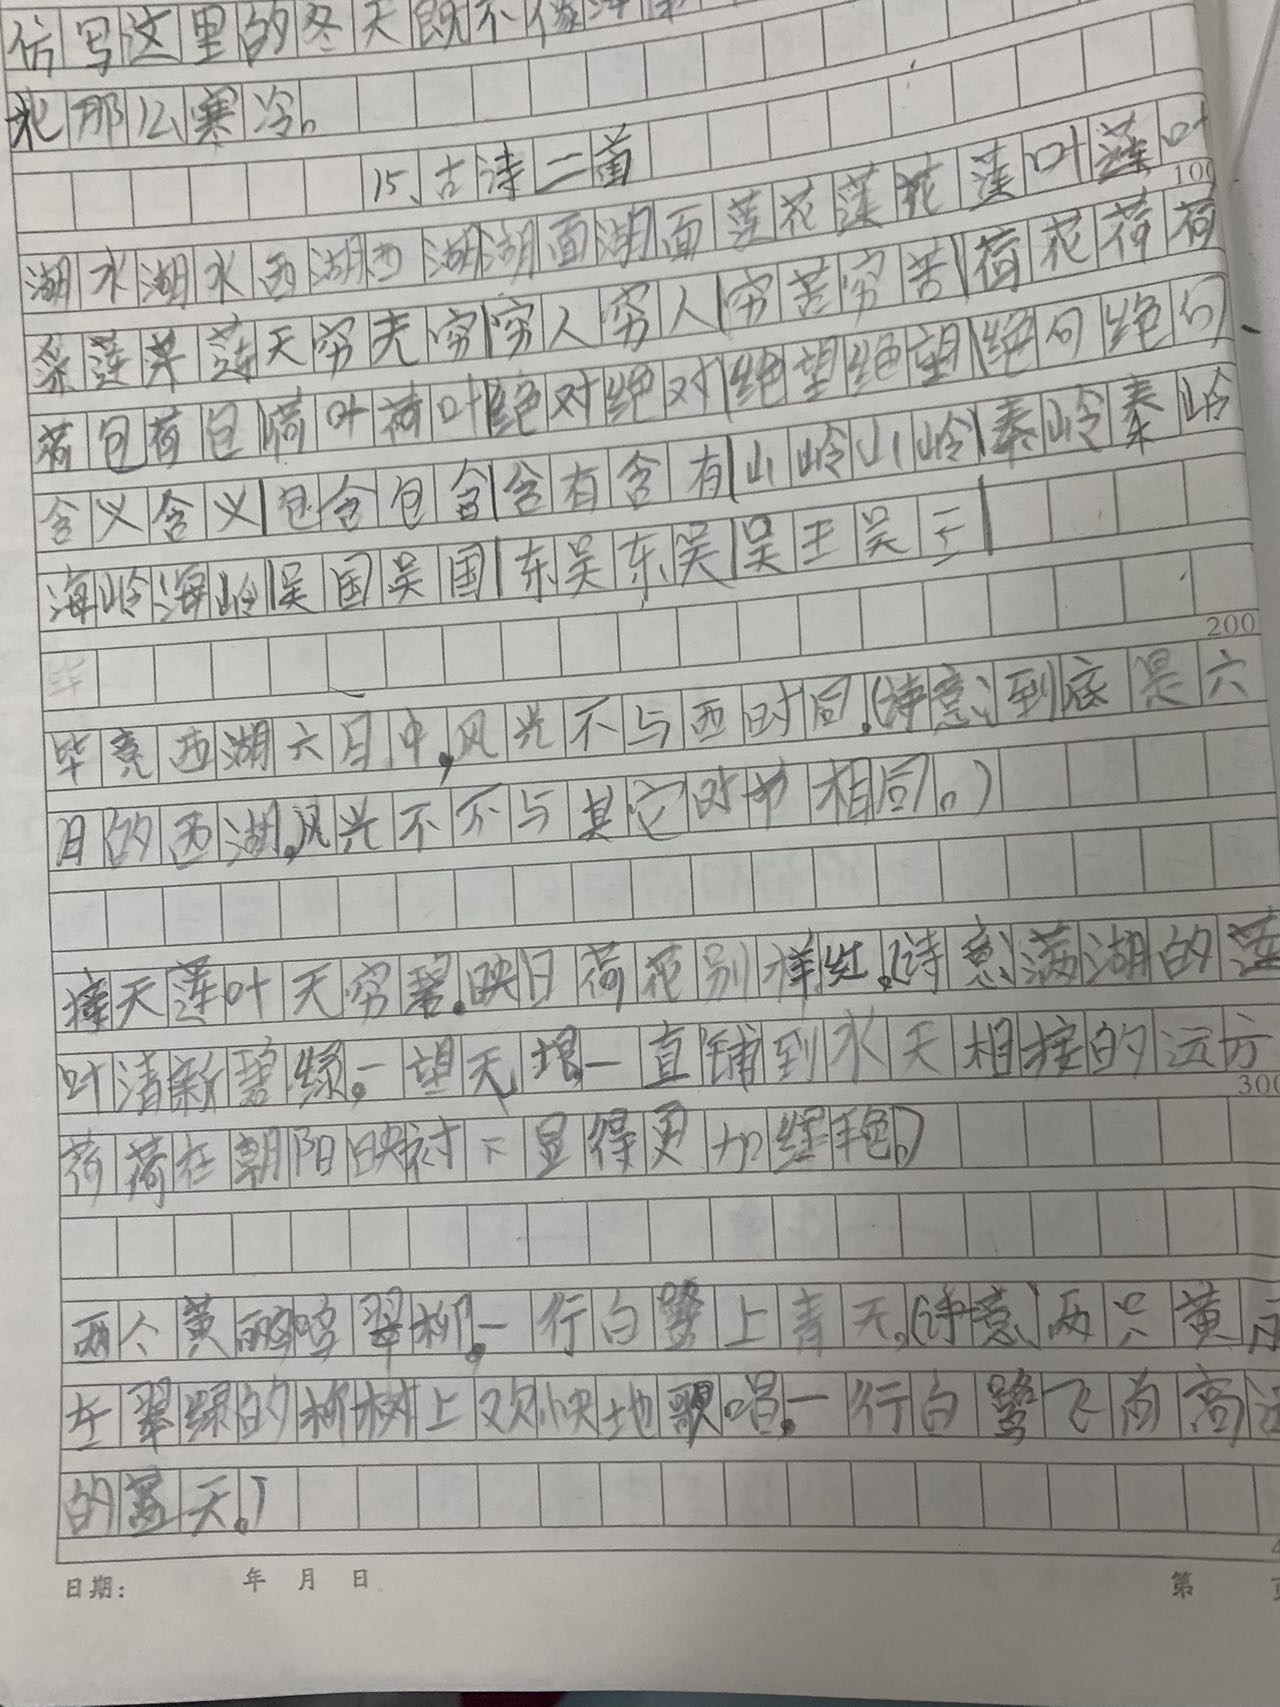 仿写这里的冬天既不像
北那么寒冷。
15、古诗二首
100
湖水湖水西湖西湖湖面湖面莲花莲花莲叶莲叶
采莲采莲无穷无穷穷人穷人穷苦穷苦荷花荷荷
荷包荷包荷叶荷叶绝对绝对绝望绝望绝句绝句
含义含义包含包含含有含有山岭山岭秦岭秦岭
海岭海岭吴国吴国东吴东吴吴王吴王
200
毕
毕竟西湖六月中,风光不与西时同。(诗意)到底是六
月的西湖,风光不不与其它时节相同。)
接天莲叶天穷碧。映日荷花别样红。(诗意)满湖的莲
叶清新碧绿。一望无垠。一直铺到水天相接的远方
300
荷荷在朝阳映衬下显得更加红艳。)
两个黄鹂鸣翠柳。一行白鹭上青天。(诗意)两只黄
在翠绿的柳树上欢快地歌唱。一行白鹭飞向高
的蓝天。)
日期: 年 月 日
第